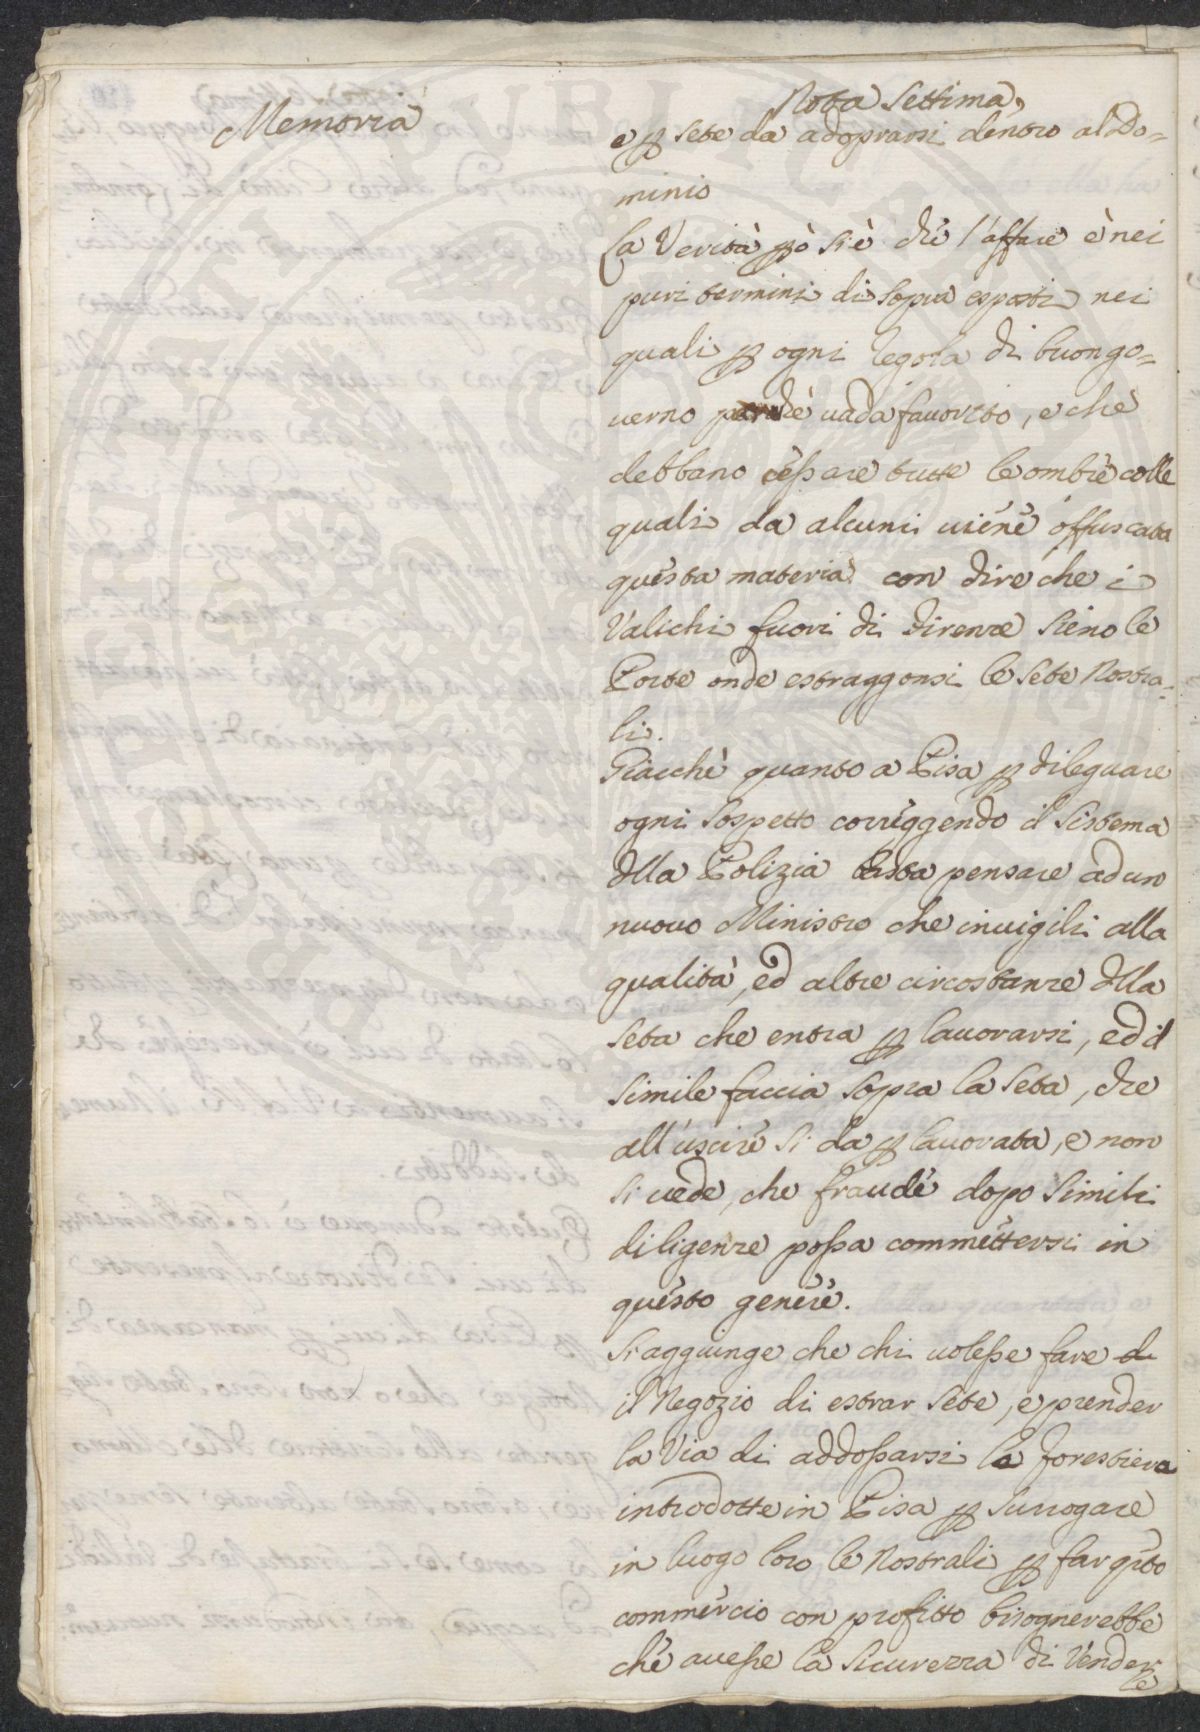 Memoria
Nota Settima,
e ꝑ sete da adoprarsi dentro al Do=
minio
La Verità ꝑò si è che l'affare è nei
puri termini di sopra esposti nei
quali ꝑ ogni regola di buongo=
verno perchè vada favorito, e che
debbano cessare tutte le ombre colle
quali da alcuni viene offuscata
questa materia con dire che i
Valichi fuori di Firenze sieno le
Porte onde estraggonsi le sete Nostra=
li.
Giacchè quanto a Pisa ꝑ dileguare
ogni sospetto correggendo il sistema
dlla Polizia basta pensare ad un
nuovo Ministro che invigili alla
qualità, ed altre circostanze dlla
seta che entra ꝑ lavorarsi, ed il
simile faccia sopra la seta, che
all'uscire si da ꝑ lavorata, e non
si vede, che fraude dopo simili
diligenze possa commettersi in
questo genere.
Si aggiunge che chi volesse fare
il Negozio di estrar sete, e prender
la Via di addossarsi le forestiere
introdotte in Pisa ꝑ surrogare
in luogo loro le Nostrali ꝑ far qsto
commercio con profitto bisognerebbe
che avesse la sicurezza di Vender
le